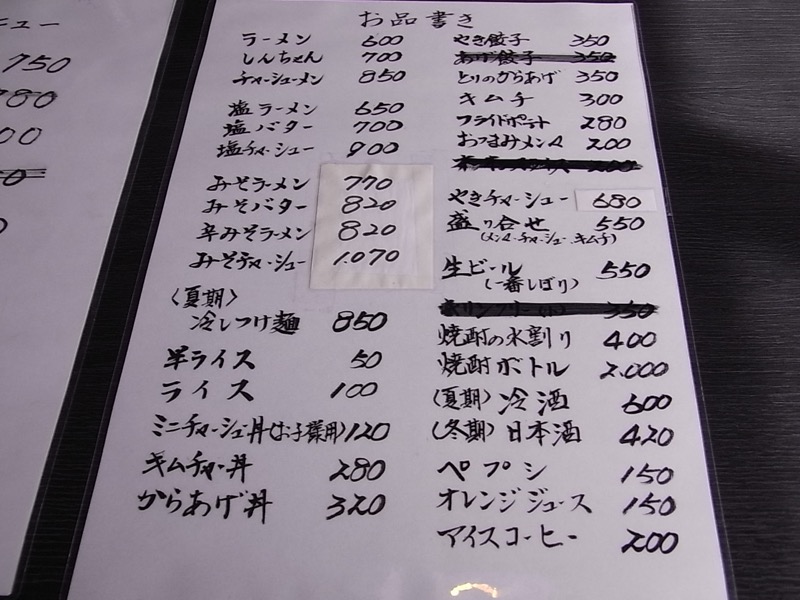 ニュー
750
780
00
お品書き
ラーメン 600
しんちゃん 700
チャーシューメン 850
塩ラーメン 650
塩バター 700
塩チャーシュー 900
みそラーメン 770
みそバター 820
辛みそラーメン 820
みそチャーシュー 1.070
(夏期)
冷しつけ麺 850
半ライス 50
ライス 100
ミニチャーシュー丼(お子様用) 120
キムチャー丼 280
からあげ丼 320
やき餃子 350
あげ餃子 350
とりのからあげ 350
キムチ 300
フライドポテト 280
おつまみメンマ 200
200
やきチャーシュー 680
盛り合せ 550
(メンマ・チャーシュー・キムチ)
生ビール 550
(一番しぼり)
350
焼酎の水割り 400
焼酎ボトル 2.000
(夏期) 冷酒 600
(冬期) 日本酒 420
ペプシ 150
オレンジジュース 150
アイスコーヒー 200